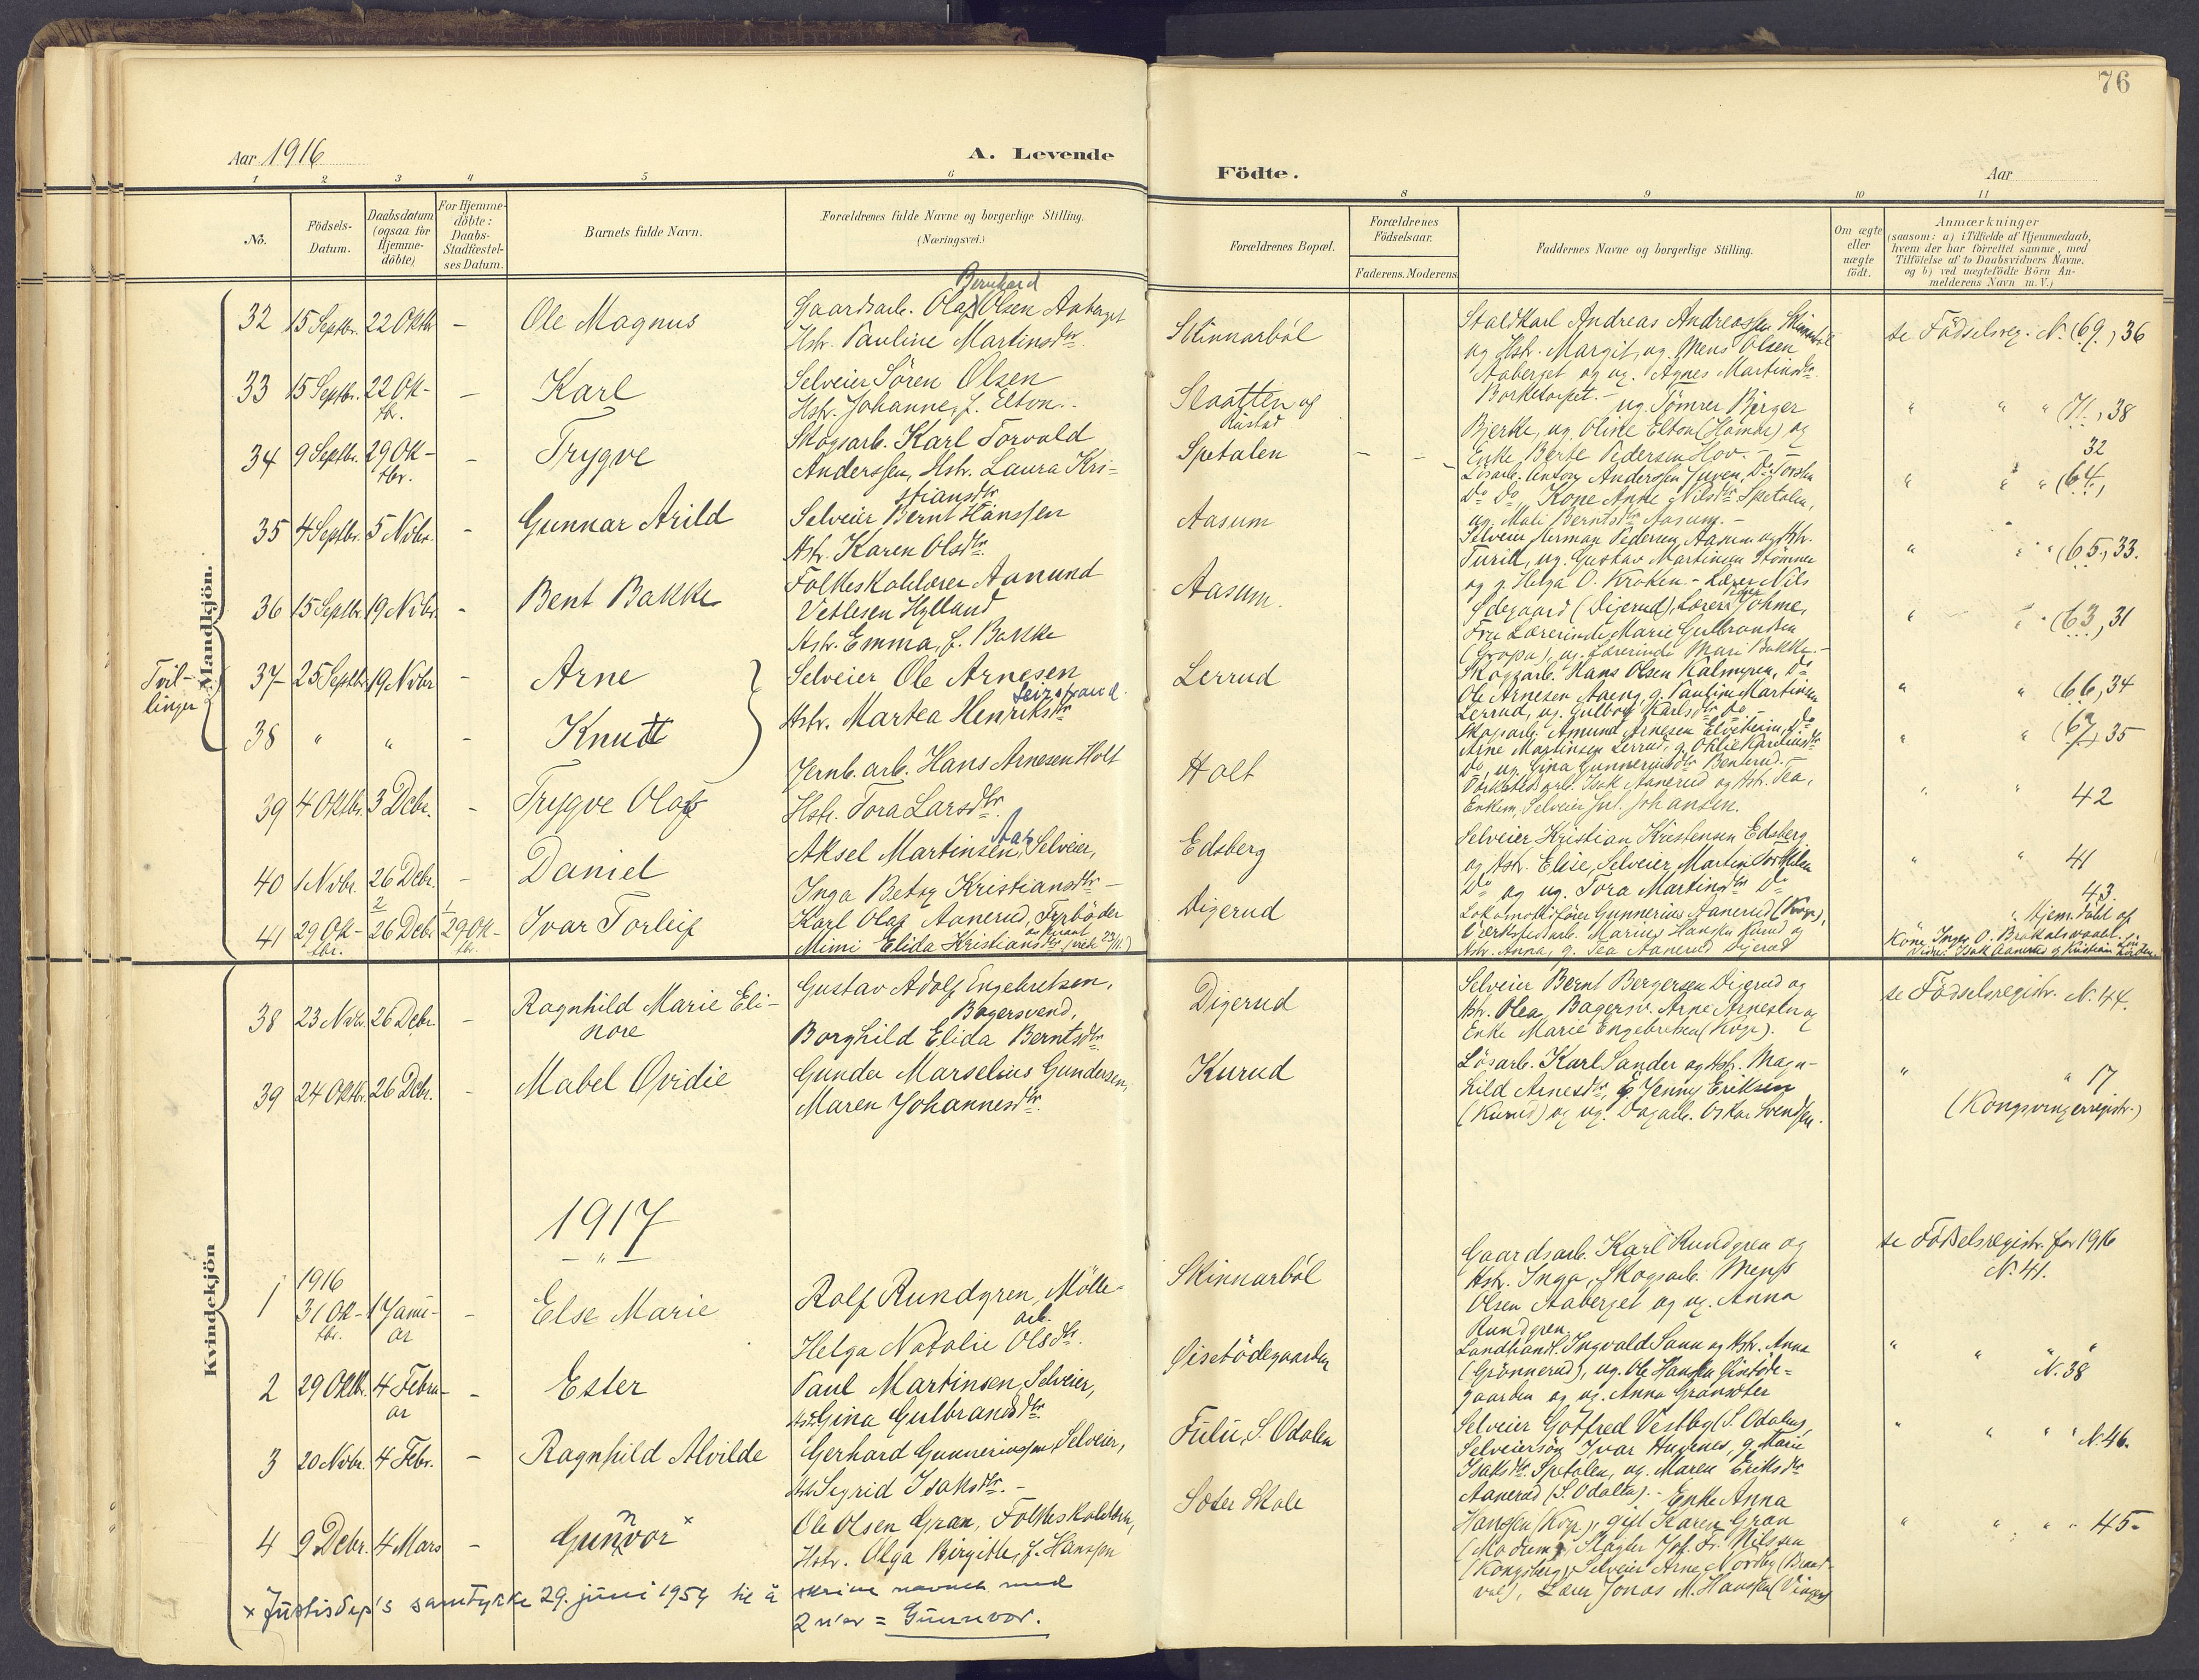 76
Aar 1916
A. Levende
Födte.
Aar
1 2 3 4 5 6 8 9 10 11
No.
Födsels-
Datum.
Daabsdatum
(ogsaa for
Hjemme-
döbte)
For Hjemme-
döbte:
Daabs-
Stadfæstel-
ses Datum.
Barnets fulde Navn.
Forældrenes fulde Navne og borgerlige Stilling.
(Næringsvei.)
Forældrenes Bopæl.
Forældrenes
Födselsaar.
Faderens. Moderens.
Faddernes Navne og borgerlige Stilling.
Om ægte
eller
uægte
födt.
Anmærkninger
(saasom: a) i Tilfælde af Hjemmedaab,
hvem der har forrettet samme, med
Tilföielse af to Daabsvidners Navne,
og b) ved uægtefödte Börn An-
melderens Navn m. V.)
Mandkjön.
32 15 Septbr. 22 Oktbr - Ole Magnus
Bernhard
Gaardsarb. Olaf Olsen Aaberget
Hstr. Pauline Martinsdtr.
Skinnarböl
Staldkarl Andreas Andreassen Skinnarböl
og Hstr. Margit, ug. Mens Olsen
Aaberget og ug. Agnes Martinsdtr.
Borketorpet. -
se Födselsreg. N. (69), 36
33 15 Septbr. 22 Ok-
tbr.
- Karl
Selveier Sören Olsen
Hstr. Johanne, f. Elton..
Slaatten og
Rustad
ug. Tömrer Birger
Bjerke, ug. Oline Elton (Hamar) og
Enke Berte Pedersen Hov. -
" " " (71), 38
34 9 Septbr. 29 Ok-
tbr.
- Trygve
Skogsarb. Karl Torvald
Anderssen, Hstr. Laura Kri-
stiansdtr
Spetalen - -
Lösarb. Anton Anderssen Juven, Do Torsten
Do Do, Kone Anne Nilsdtr Spetalen,
ug. Mali Berntsdtr Aasum. -
32
" " " (64),
35 4 Septbr. 5 Novbr. - Gunnar Arild
Selveier Bernt Hanssen
Hstr. Karen Olsdtr.
Aasum
Selveier Herman Pedersen Aasum og Hstr.
Turid, ug. Gustav Martinsen Strömmen
og g. Helga O. Kroken. -
" " " (65), 33.
36 15 Septbr. 19 Novbr. - Bent Bakke
Folkeskolelærer Aanund
Vetlesen Hylland
Hstr. Emma, f. Bakke
Aasum.
Lærer Nils
Ødegaard (Digerud), Lærer Johme,
Fru Lærerinde Marie Gulbrandsen
(Gropa), ug. Lærerinde Mari Bakke. -
" " " (63), 31
Tvil-
linger
37 25 Septbr. 19 Novbr - Arne
Selveier Ole Arnesen
Hstr. Martea Henriksdtr
Lerrud
Skogsarb. Hans Olsen Kalmyren, Do
Ole Arnesen Aaeng, g. Pauline Martinsen
Lerrud, ug. Gulborg Karlsdtr Do -
" " (66), 34
38 " " - Knut
Skogsarb. Amund Arnesen Elveheim, Do
Arne Martinsen Lerrud, g. Oktie Karelius dtr
Do, ug. Gina Gunneriusdtr Benterud. -
" " (67), 35
39 4 Oktbr. 3 Debr. - Trygve Olaf
Jernb. arb. Hans Arnesen Holt
Hstr. Tora Larsdtr.
Holt
Værkstedsarb. Isak Aanerud og Hstr. Tea,
Enkem. Selveier Joh. Johansen.
" " 42
40 1 Novbr. 26 Debr. - Daniel
Aksel Martinsen, Selveier,
Inga Betzy Kristiansdtr -
Edsberg
Selveier Kristian Kristensen Edsberg
og Hstr. Elise, Selveier Martin Torkilsen
Do og ug. Tora Martinsdtr Do
" " 41
41 29 Ok-
tbr.
2
26 Debr
1
29 Ok-
tbr.
Ivar Torleif
Karl Olaf Aanerud, Fyrböder
Mimi Elida Kristiansdtr
Digerud
Lokomotivförer Gunnerius Aanerud (Kvgr),
Værkstedsarb. Marius Hansen Rund og
Hstr. Anna, g. Tea Aanerud Digerud
43.
" Hjem. döbt af
Kone Inger O. Brokalsvaabt.
Vidner Isak Aanerud og Kristian
Kvindekjön
38 23 Novbr. 26 Debr. - Ragnhild Marie Eli-
nore
Gustav Adolf Engebretsen,
Bagersvend,
Borghild Elida Berntsdtr
Digerud
Selveier Bernt Bergersen Digerud og
Hstr. Olea, Bagersv. Arne Arnesen og
Enke Marie Engebretsen (Kvgr).
se Födselsregistr. N. 44.
39 24 Oktbr. 26 Debr. - Mabel Ovidie
Gunder Marselius Gundersen,
Maren Johannesdtr.
Kurud
Lösarb. Karl Sander og Hstr. Magn-
hild Arnesdtr, g. Jenny Eriksen
(Kurud) og ug. Dagarb. Oskar Svendsen.
" " 17
(Kongsvingerregistr.)
1917
- " -
1 1916
31 Ok-
tbr.
1 Janu-
ar
- Else Marie
Rolf Rundgren, Mölle-
arb.
Helga Natalie Olsdtr.
Skinnarböl
Gaardsarb. Karl Rundgren og
Hstr. Inga, Skogsarb. Mens
Olsen Aaberget og ug. Anna
Rundgren
se Födselsregistr. for 1916
N. 41.
2 29 Oktbr. 4 Febru-
ar
- Ester
Paul Martinsen, Selveier,
Hstr. Gina Gulbrandsdtr.
Gisetödegaarden
Landhandl. Ingvald Sann og Hstr. Anna
(Grönnerud), ug. Ole Hansen Gisetöde-
gaarden og ug. Anna Gransæter
" " " "
N. 38
3 20 Novbr. 4 Febr. - Ragnhild Alvilde
Gerhard Gunneriussen, Selveier,
Hstr. Sigrid Isaksdtr. -
Fulu, S. Odalen
Selveier Gotfred Vestby (S. Odalen),
Selveiersön Ivar Hugnes, g. Marie
Isaksdtr. Spetalen, ug. Maren Eriksdtr
Aanerud (S. Odalen). -
" " " " N. 46.
4 9 Debr. 4 Mars - Gunnvor x
Ole Olsen Gran, Folkeskolelærer,
Hstr. Olga Birgitte, f. Hanssen
Sæter Skole
Enke Anna
Hansen (Kvgr), gift Karen Gran
(Modum), Slagter Jof. Fr. Nilssen
(Kongsberg), Selveier Arne Nordby (Brand-
val), Lærer Jonas M. Hanssen (Vinger)
" " " " 45.
x Justisdep's samtykke 29. juni 1954 til å skrive navnet med
2 n'er = Gunnvor.